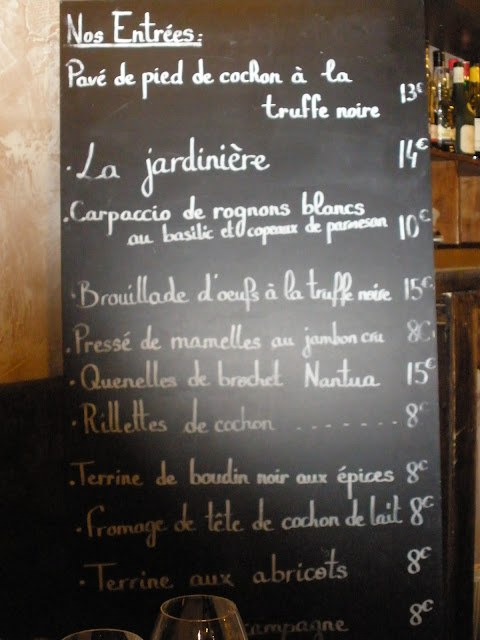 Nos Entrées:
Pavé de pied de cochon à la
truffe noire 13€
· La jardinière 14€
· Carpaccio de rognons blancs
au basilic et copeaux de parmesan 10€
· Brouillade d'oeufs à la truffe noire 15€
· Pressé de mamelles au jambon cru 8€
· Quenelles de brochet Nantua 15€
· Rillettes de cochon ....... 8€
· Terrine de boudin noir aux épices 8€
· Fromage de tête de cochon de lait 8€
· Terrine aux abricots 8€
campagne 8€